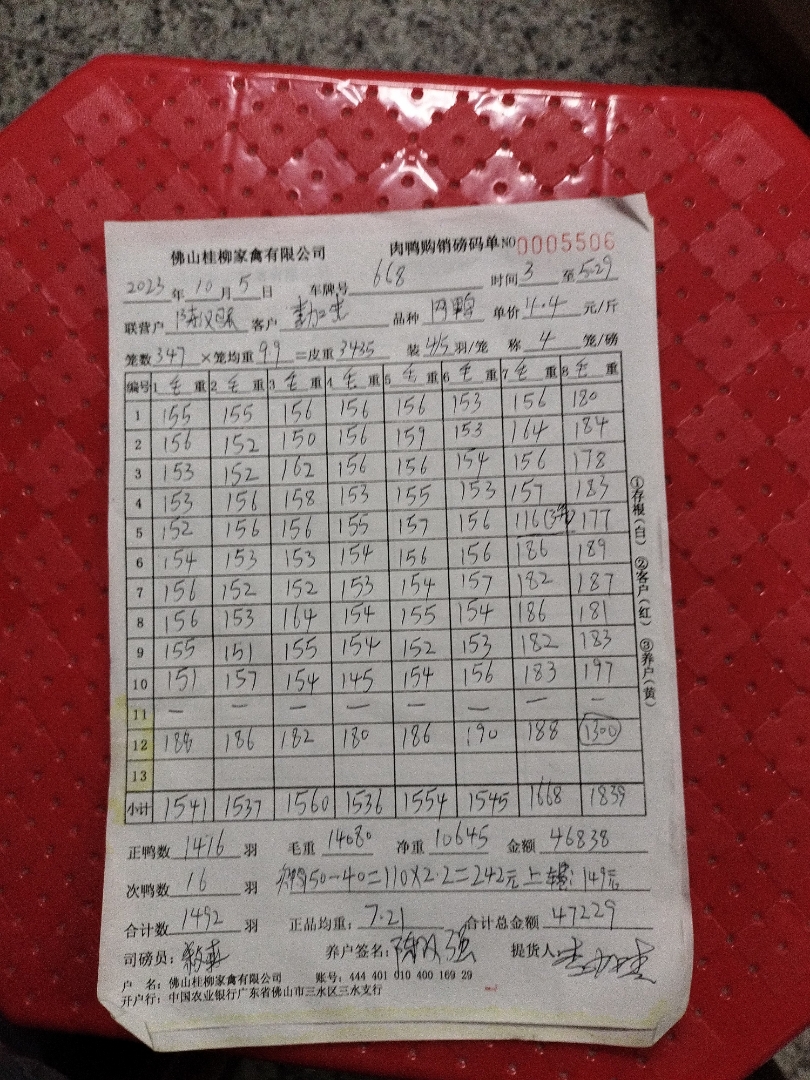 佛山桂柳家禽有限公司 肉鸭购销磅码单 NO 0005506
2023年10月5日 车牌号 668 时间3至5:29
联营户 陈汉强 客户 品种 肉鸭 单价4.4元/斤
笼数347×笼均重9.9=皮重3435 装4/5羽/笼 称4笼/磅
编号 1毛重 2毛重 3毛重 4毛重 5毛重 6毛重 7毛重 8毛重
1 155 155 156 156 156 153 156 180
2 156 152 150 156 159 153 164 184
3 153 152 162 156 156 154 156 178
4 153 156 158 153 155 153 157 183
5 152 156 156 155 157 156 116(3笼) 177
6 154 153 153 154 156 156 186 189
7 156 152 152 153 154 157 182 187
8 156 153 164 154 155 154 186 181
9 155 151 155 154 152 153 182 183
10 151 157 154 145 154 156 183 197
11 — — — — — — — —
12 188 186 182 180 186 190 188 1300
13
小计 1541 1537 1560 1536 1554 1545 1668 1839
①存根(白) ②客户(红) ③养户(黄)
正鸭数1476羽 毛重14080 净重10645 金额46838
次鸭数16羽 150-40=110×2.2=242元 上车费:149元
合计数1492羽 正品均重:7.21 合计总金额47229
司磅员: 养户签名:陈汉强 提货人
户 名:佛山桂柳家禽有限公司 账号:444 401 010 400 169 29
开户行:中国农业银行广东省佛山市三水区三水支行